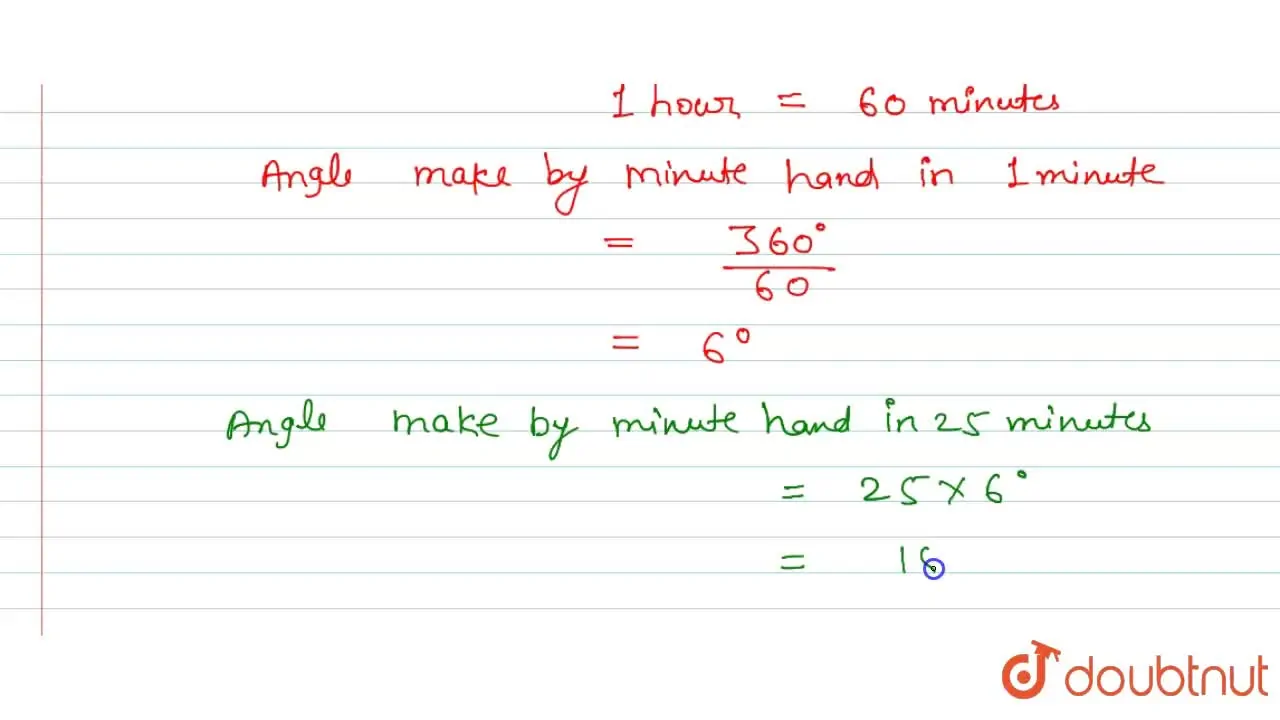 1 hour = 60 minutes
Angle make by minute hand in 1 minute
= 360°
60
= 6°
Angle make by minute hand in 25 minutes
= 25 × 6°
= 1
doubtnut